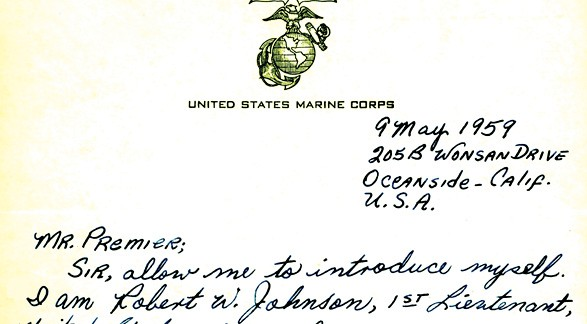 UNITED STATES MARINE CORPS
9 May 1959
205B WONSAN DRIVE
OCEANSIDE - CALIF.
U.S.A.
MR. PREMIER;
SIR, allow me to introduce myself.
I am Robert W. Johnson, 1ST Lieutenant,